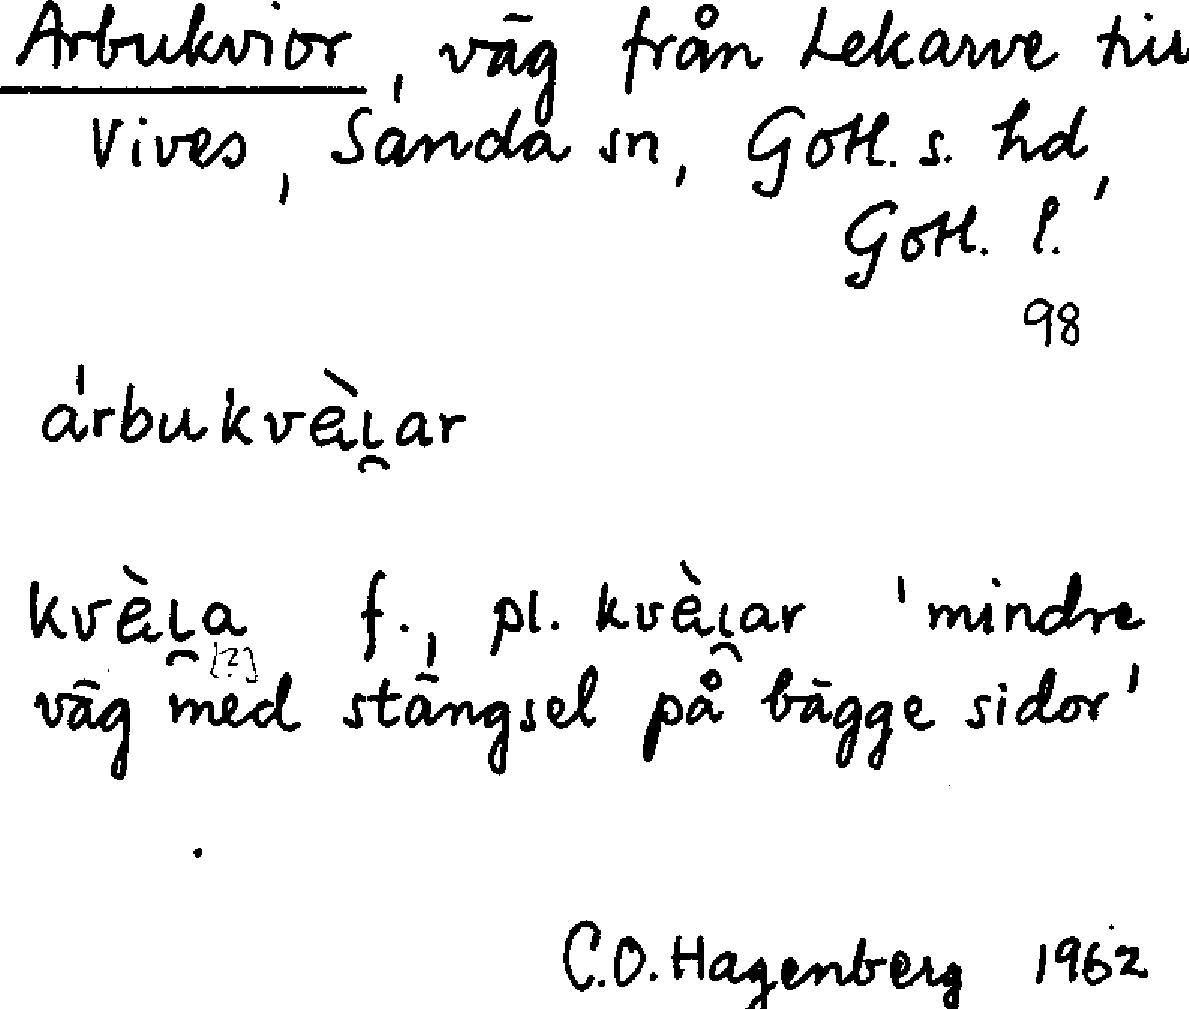 Arbukvior, väg från Lekarve till
Vives, Sanda sn, Gotl. s. hd,
Gotl. l.
98
árbukvèi̯ar
kvèi̯a f., pl. kvèi̯ar 'mindre
[?]
väg med stängsel på bägge sidor'
C.O. Hagenberg 1962